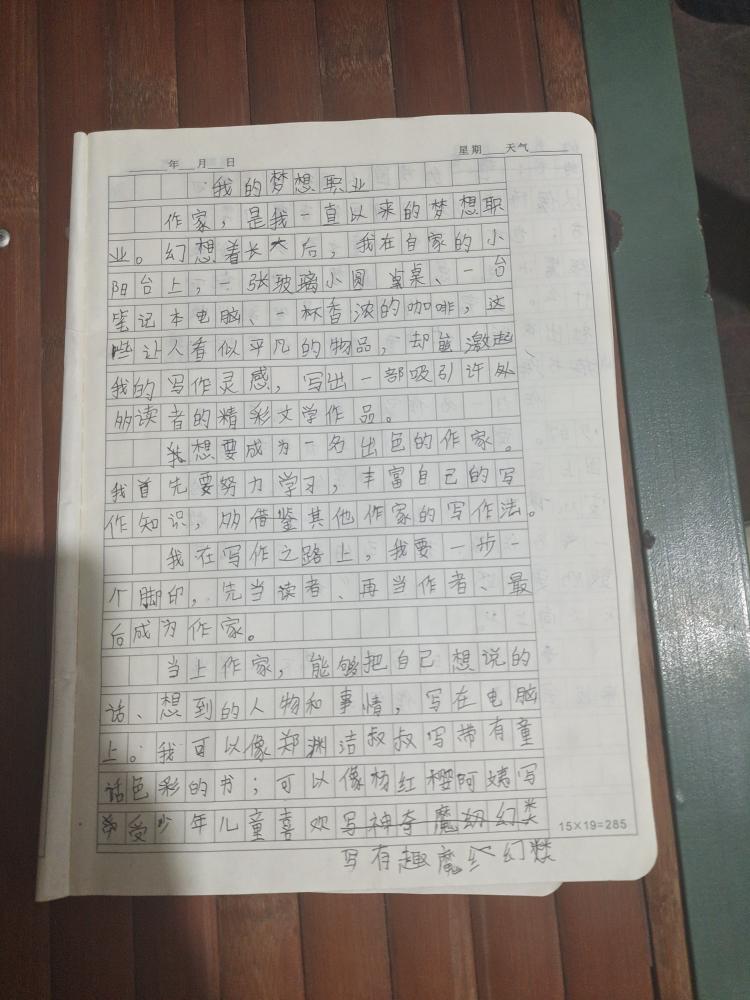 年 月 日 星期 天气
我的梦想职业
作家，是我一直以来的梦想职
业。幻想着长大后，我在自家的小
阳台上，一张玻璃小圆桌、一台
笔记本电脑、一杯香浓的咖啡，这
些让人看似平凡的物品，却能激起
我的写作灵感，写出一部吸引许外
多读者的精彩文学作品。
我想要成为一名出色的作家。
我首先要努力学习，丰富自己的写
作知识，多借鉴其他作家的写作法。
我在写作之路上，我要一步一
个脚印，先当读者、再当作者、最
后成为作家。
当上作家，能够把自己想说的
话、想到的人物和事情，写在电脑
上。我可以像郑渊洁叔叔写带有童
话色彩的书；可以像杨红樱阿姨写
受少年儿童喜欢写神奇魔幻类
15×19=285
写有趣魔幻类